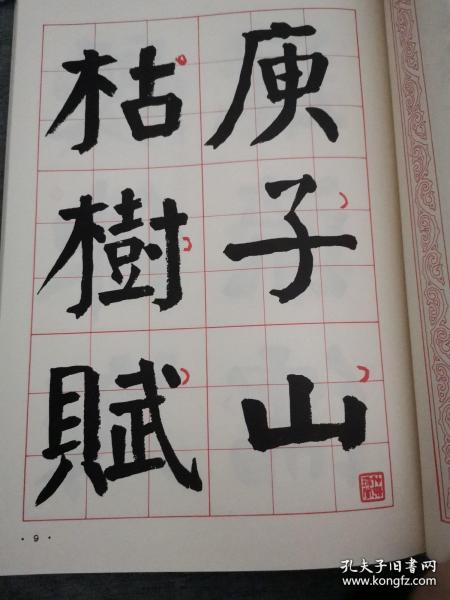 庾子山
枯樹賦
· 9 ·
孔夫子旧书网
www.kongfz.com